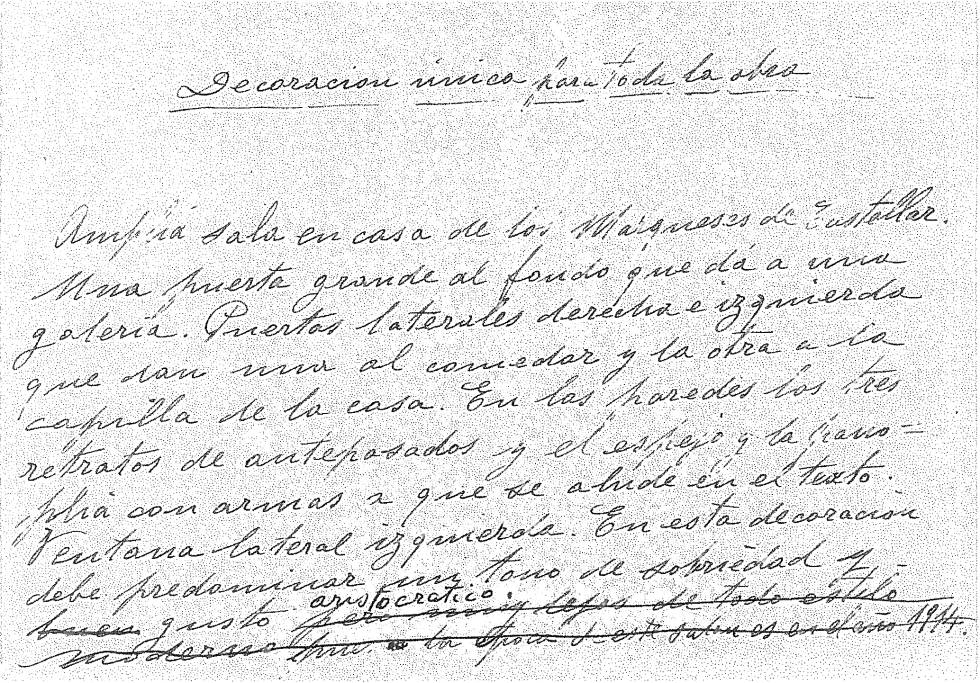 Decoracion única para toda la obra
Amplia sala en casa de los Marqueses de
Una puerta grande al fondo que dá a una
galeria. Puertas laterales derecha e izquierda
que dan una al comedor y la otra a la
capilla de la casa. En las paredes los tres
retratos de antepasados y el espejo y la pano=
plia con armas a que se alude en el texto.
Ventana lateral izquierda. En esta decoracion
debe predominar un tono de sobriedad y
aristocratico.
buen gusto pero muy lejos de todo estilo
moderno pues la época es en el año 1914.